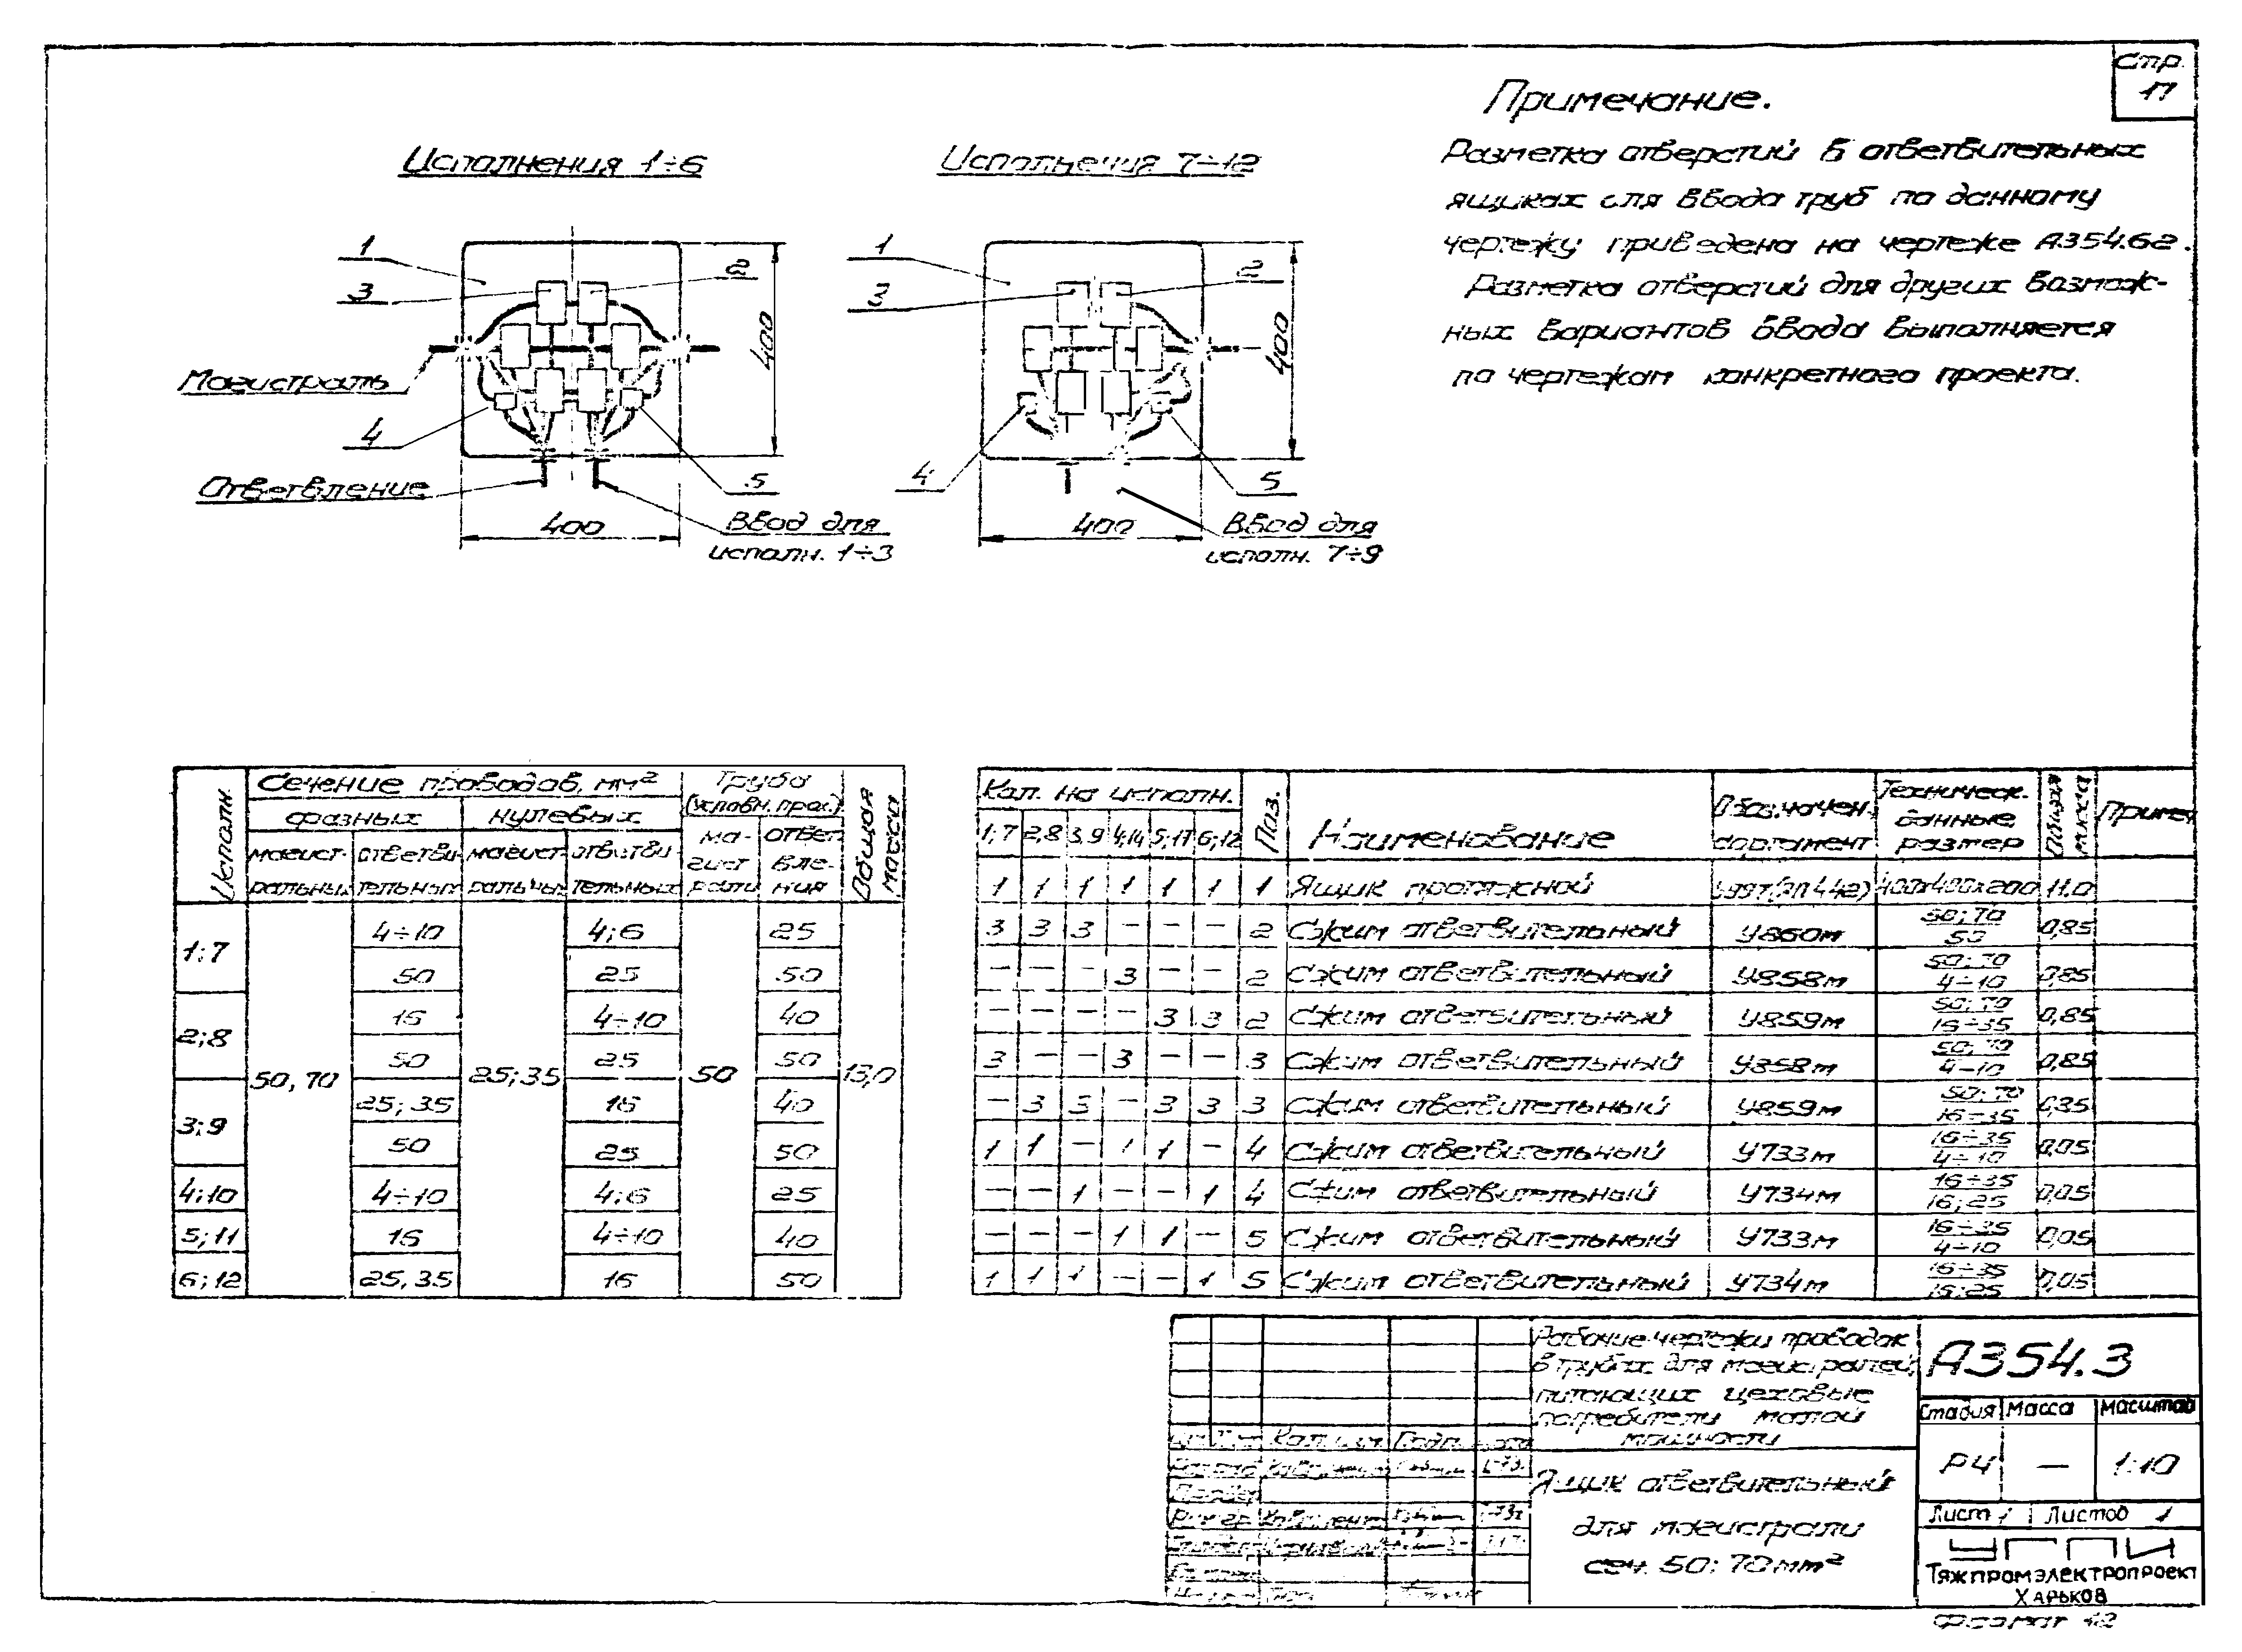 Стр.
17
Примечание.
Разметка отверстий в ответвительных
ящиках для ввода труб по данному
чертежу приведена на чертеже А354.62.
Разметка отверстий для других возмож-
ных вариантов ввода выполняется
по чертежам конкретного проекта.
Исполнения 1÷6
1
3
2
400
Магистраль
4
Ответвление
5
400
Ввод для
исполн. 1÷3
Исполнения 7÷12
1
3
2
400
4
5
400
Ввод для
исполн. 7÷9
Исполн.
Сечение проводов, мм²
Труба
(условн. прох.)
Общая масса
фазных
нулевых
магист-
ральных
ответви-
тельных
магист-
ральных
ответви-
тельных
ма-
гист
рали
ответ
вле-
ния
1;7
4÷10
4;6
25
50
25
50
2;8
16
4÷10
40
50
25
50
50, 70
25;35
50
13,0
3;9
25; 35
16
40
50
25
50
4;10
4÷10
4;6
25
5;11
16
4÷10
40
6;12
25, 35
16
50
Кол. на исполн.
Поз.
Наименование
Обозначен.
сортамент
Техническ.
данные,
размер
Общая масса
Примеч
1;7 2,8 3,9 4;14 5;17 6;12
1 1 1 1 1 1 1 Ящик протяжной 400х400х200 11.0
3 3 3 – – – 2 Сжим ответвительный У860м 50;70/50 0,85
– – – 3 – – 2 Сжим ответвительный У858м 50;70/4÷10 0,85
– – – – 3 3 2 Сжим ответвительный У859м 50;70/16÷35 0,85
3 – – 3 – – 3 Сжим ответвительный У858м 50;70/4÷10 0,85
– 3 3 – 3 3 3 Сжим ответвительный У859м 50;70/16÷35 0,85
1 1 – 1 1 – 4 Сжим ответвительный У733м 16÷35/4÷10 0,05
– – 1 – – 1 4 Сжим ответвительный У734м 16÷35/16;25 0,05
– – – 1 1 – 5 Сжим ответвительный У733м 16÷35/4÷10 0,05
1 1 1 – – 1 5 Сжим ответвительный У734м 16÷35/16;25 0,05
Рабочие чертежи проводок
в трубах для магистралей,
питающих цеховые
потребители малой
мощности
А354.3
Стадия Масса Масштаб
РЧ — 1:10
Ящик ответвительный
для магистрали
сеч. 50; 70мм²
Лист 1 Листов 1
Тяжпромэлектропроект
Харьков
Формат 12